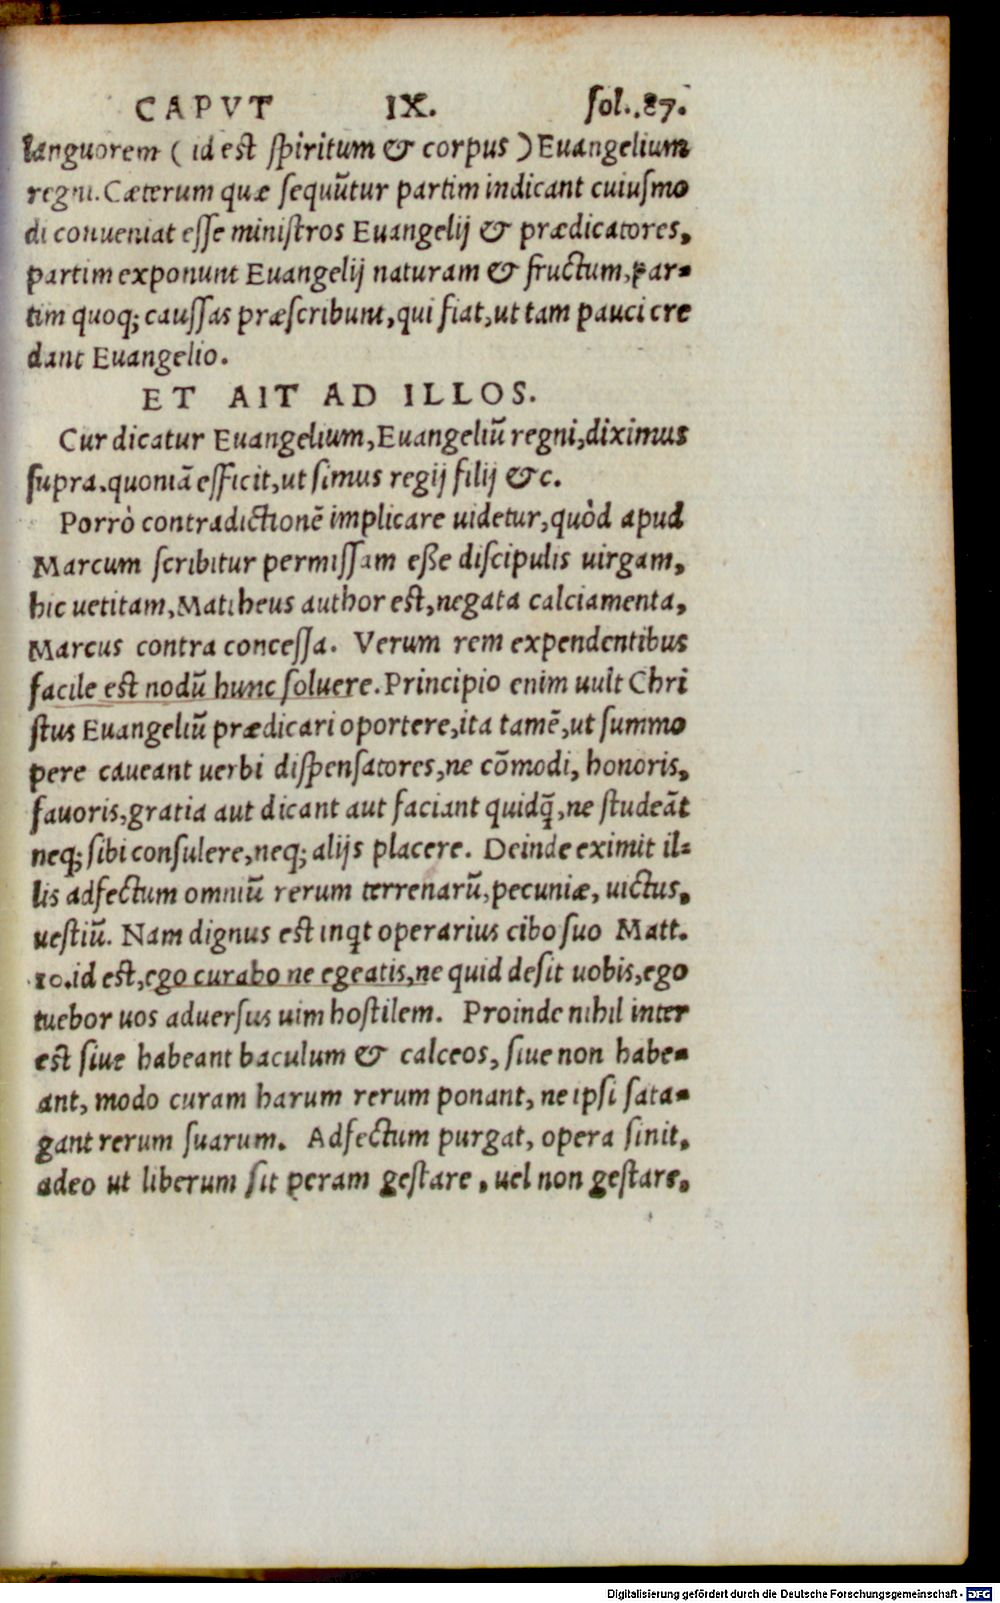 CAPVT IX. fol. 87.
languorem ( id est spiritum & corpus ) Euangelium
regni. Cæterum quæ sequūtur partim indicant cuiusmo
di conueniat esse ministros Euangelij & prædicatores,
partim exponunt Euangelij naturam & fructum, par-
tim quoq; caussas præscribunt, qui fiat, ut tam pauci cre
dant Euangelio.
ET AIT AD ILLOS.
Cur dicatur Euangelium, Euangeliū regni, diximus
supra. quoniā efficit, ut simus regij filij &c.
Porrò contradictionē implicare uidetur, quòd apud
Marcum scribitur permissam eße discipulis uirgam,
hic uetitam, Mattheus author est, negata calciamenta,
Marcus contra concessa. Verum rem expendentibus
facile est nodū hunc soluere. Principio enim uult Chri
stus Euangeliū prædicari oportere, ita tamē, ut summo
pere caueant uerbi dispensatores, ne cōmodi, honoris,
fauoris, gratia aut dicant aut faciant quidq̄, ne studeāt
neq; sibi consulere, neq; alijs placere. Deinde eximit il-
lis adfectum omniū rerum terrenarū, pecuniæ, uictus,
uestiū. Nam dignus est inq̇t operarius cibo suo Matt.
10. id est, ego curabo ne egeatis, ne quid desit uobis, ego
tuebor uos aduersus uim hostilem. Proinde nihil inter
est siue habeant baculum & calceos, siue non habe-
ant, modo curam harum rerum ponant, ne ipsi sata-
gant rerum suarum. Adfectum purgat, opera sinit,
adeo ut liberum sit peram gestare, uel non gestare,
Digitalisierung gefördert durch die Deutsche Forschungsgemeinschaft - DFG